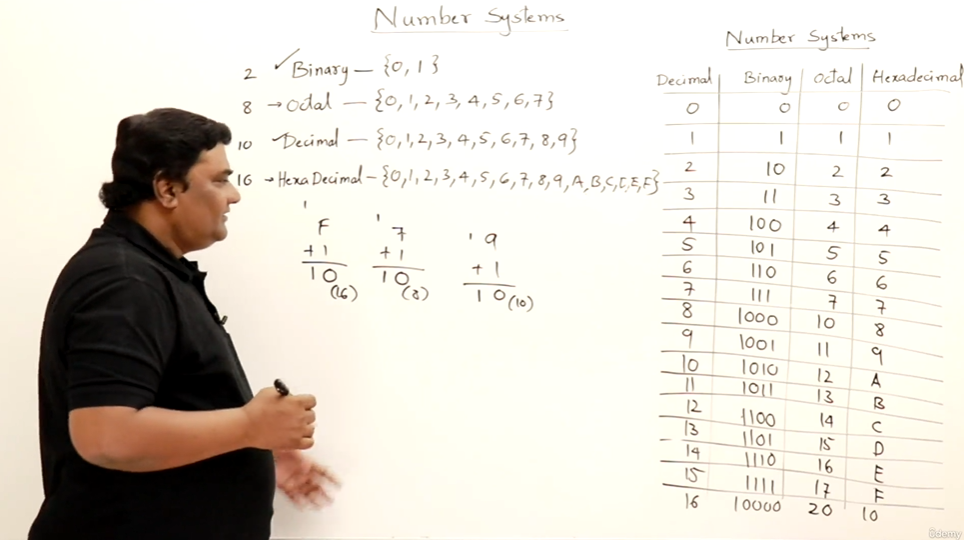 Number Systems
2 ✓Binary — {0, 1}
8 → Octal — {0, 1, 2, 3, 4, 5, 6, 7}
10 Decimal — {0, 1, 2, 3, 4, 5, 6, 7, 8, 9}
16 → HexaDecimal — {0, 1, 2, 3, 4, 5, 6, 7, 8, 9, A, B, C, D, E, F}
1
F
+1
10(16)
1
7
+1
10(8)
1 9
+1
10(10)
Number Systems
Decimal Binaoy Octal Hexadecimal
0 0 0 0
1 1 1 1
2 10 2 2
3 11 3 3
4 100 4 4
5 101 5 5
6 110 6 6
7 111 7 7
8 1000 10 8
9 1001 11 9
10 1010 12 A
11 1011 13 B
12 1100 14 C
13 1101 15 D
14 1110 16 E
15 1111 17 F
16 10000 20 10
ûdemy